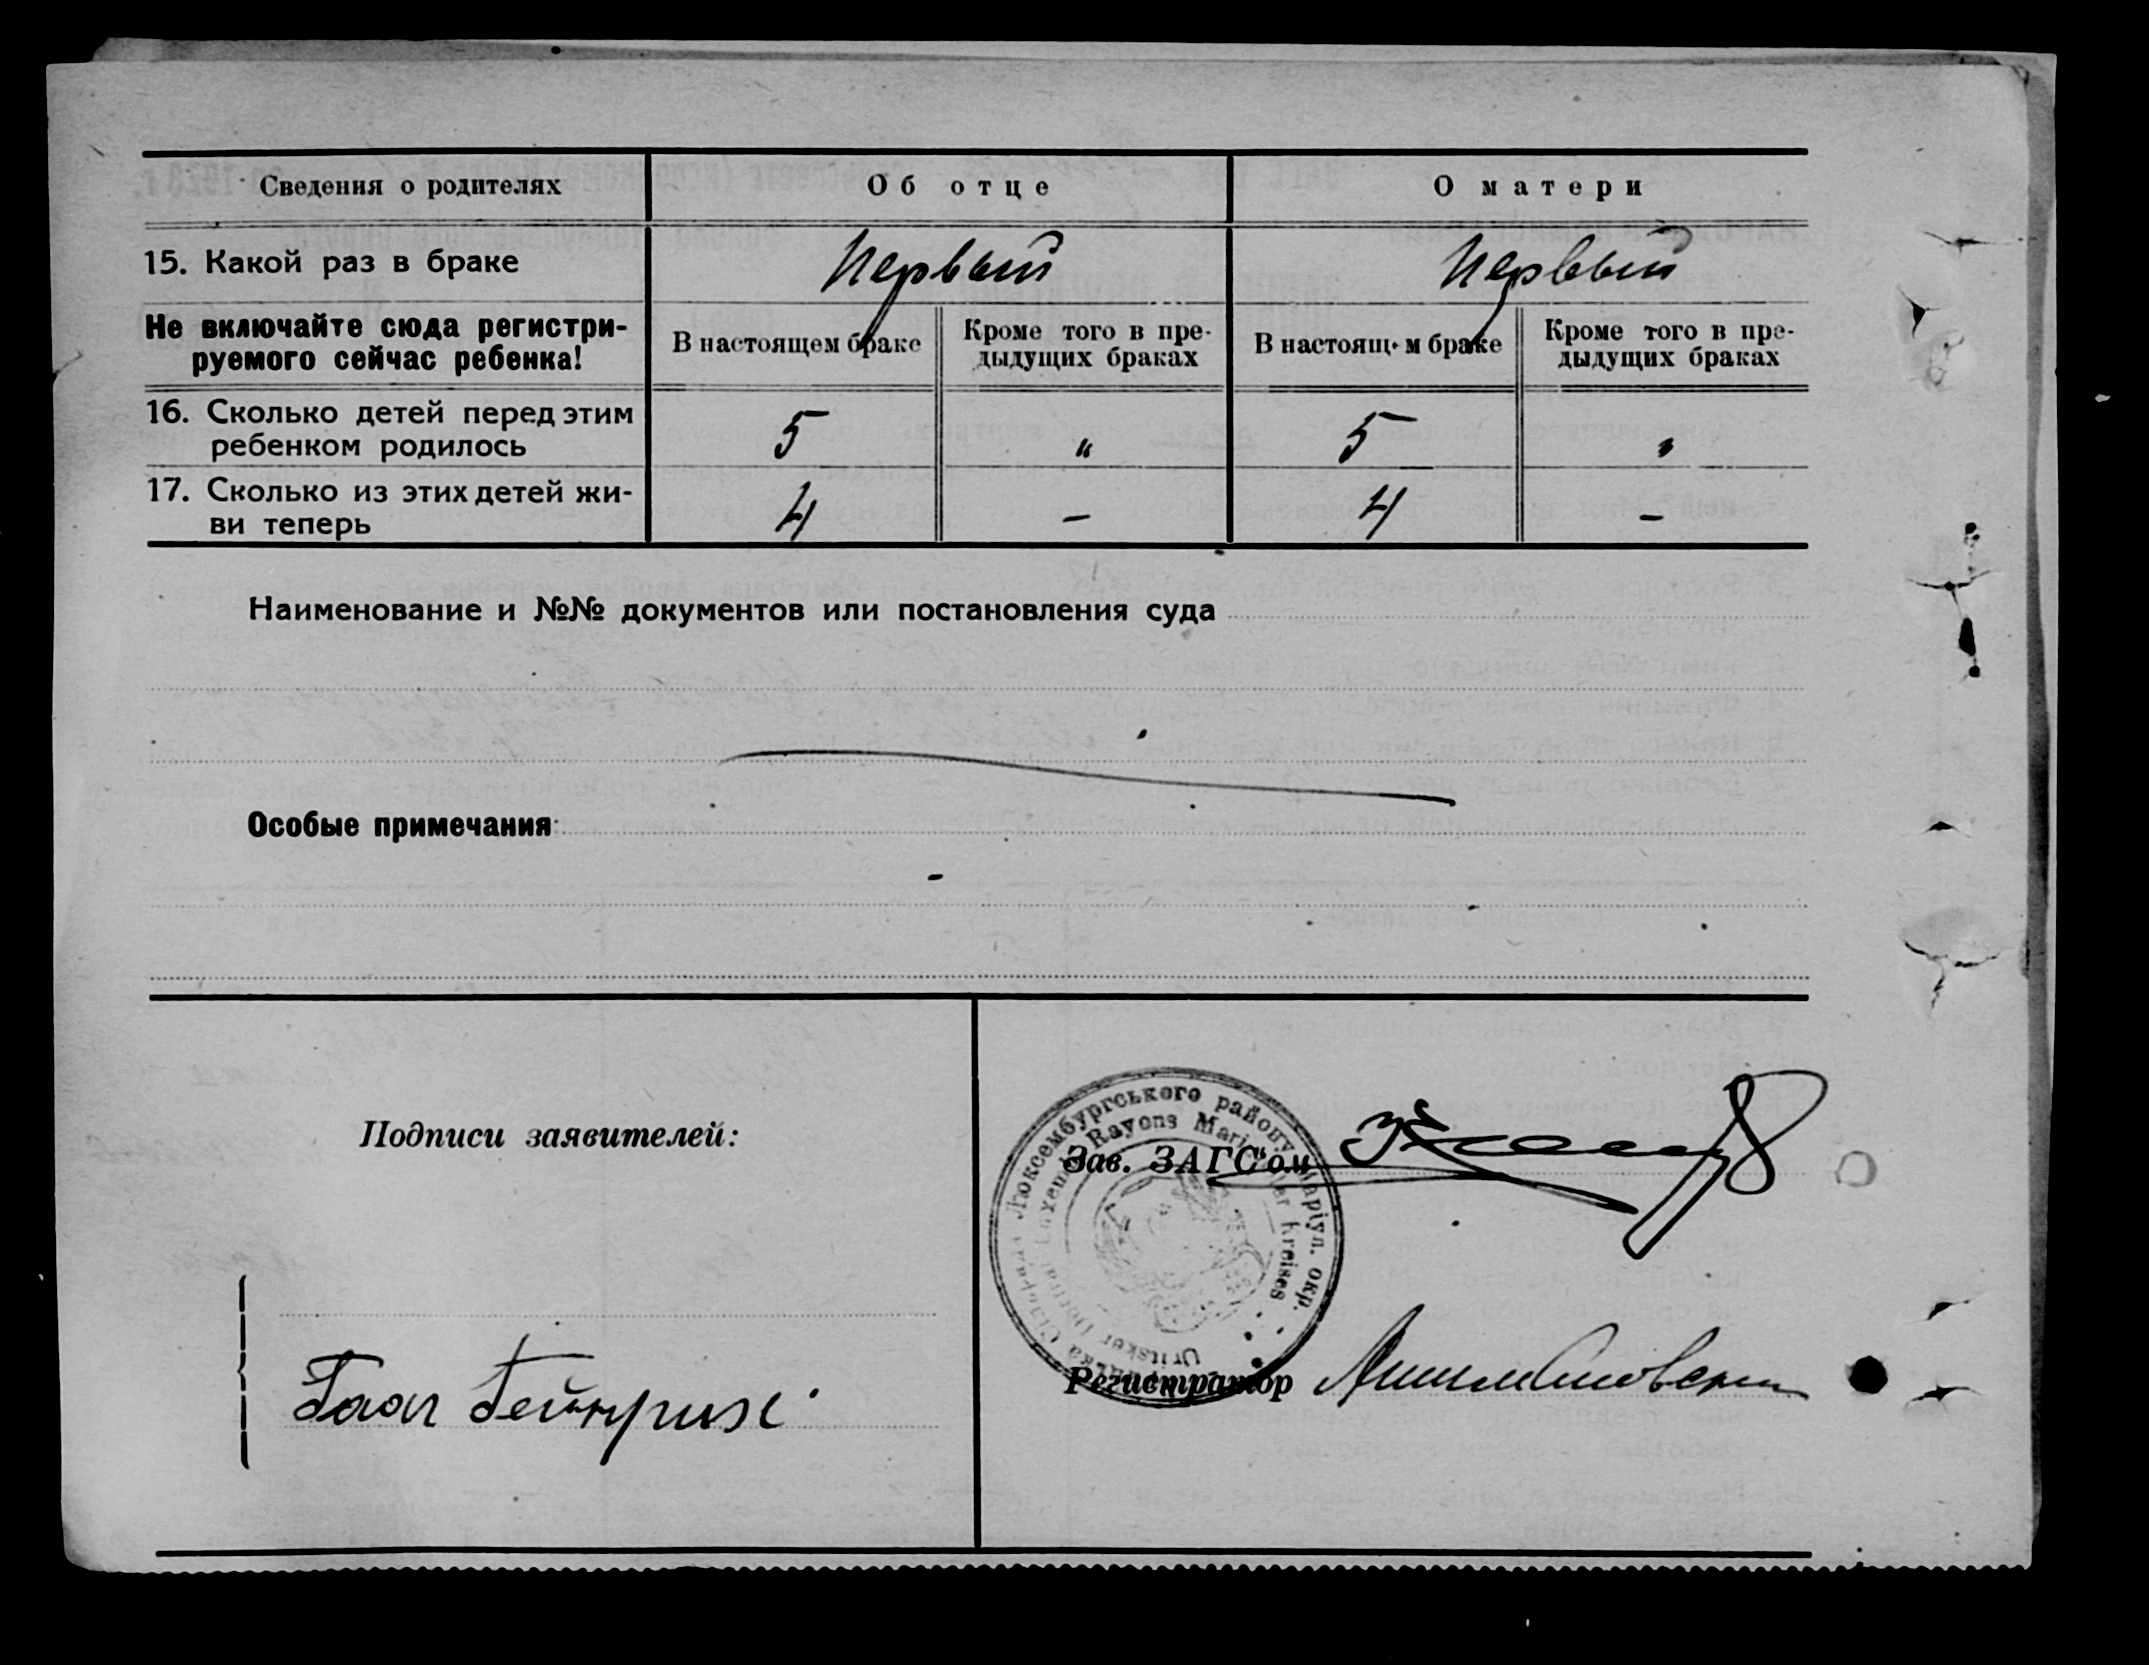 Сведения о родителях Об отце О матери
15. Какой раз в браке Первый Первый
Не включайте сюда регистри-
руемого сейчас ребенка!
В настоящем браке Кроме того в пре-
дыдущих браках
В настоящ м браке Кроме того в пре-
дыдущих браках
16. Сколько детей перед этим
ребенком родилось 5 " 5 "
17. Сколько из этих детей жи-
ви теперь 4 – 4 –
Наименование и №№ документов или постановления суда
Особые примечания
Подписи заявителей:
Гаап Гейнрих
Люксембургського району Маріуп. окр.
Rayons Mariupoler Kreises
Зав. ЗАГС'ом
Регистратор